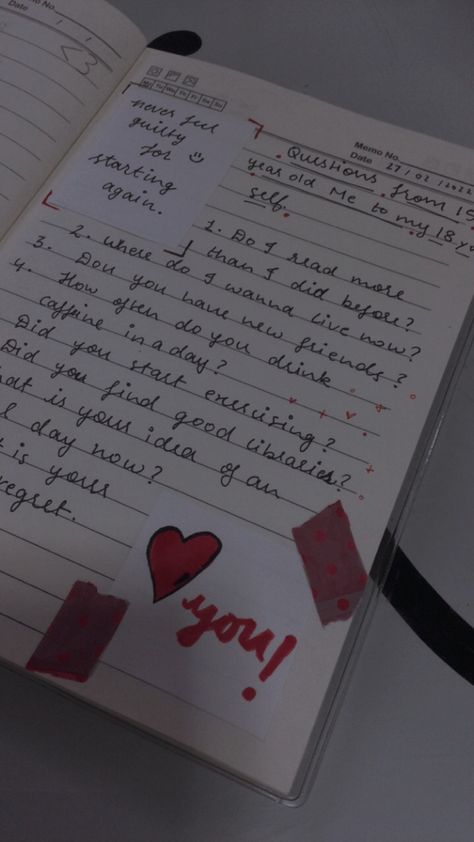 Date
Memo No.
<3
Mo Tu We Th Fr Sa Su
never feel
guilty
for
starting
again.
Memo No.
Date 27/02/202
Questions from 15
year old Me to my 18 y
self.
1. Do I read more
than I did before?
2. where do I wanna live now?
3. Don you have new friends?
4. How often do you drink
caffeine in a day?
Did you start exercising?
Did you find good libraries?
hat is your idea of an
l day now?
t is your
regret.
you!